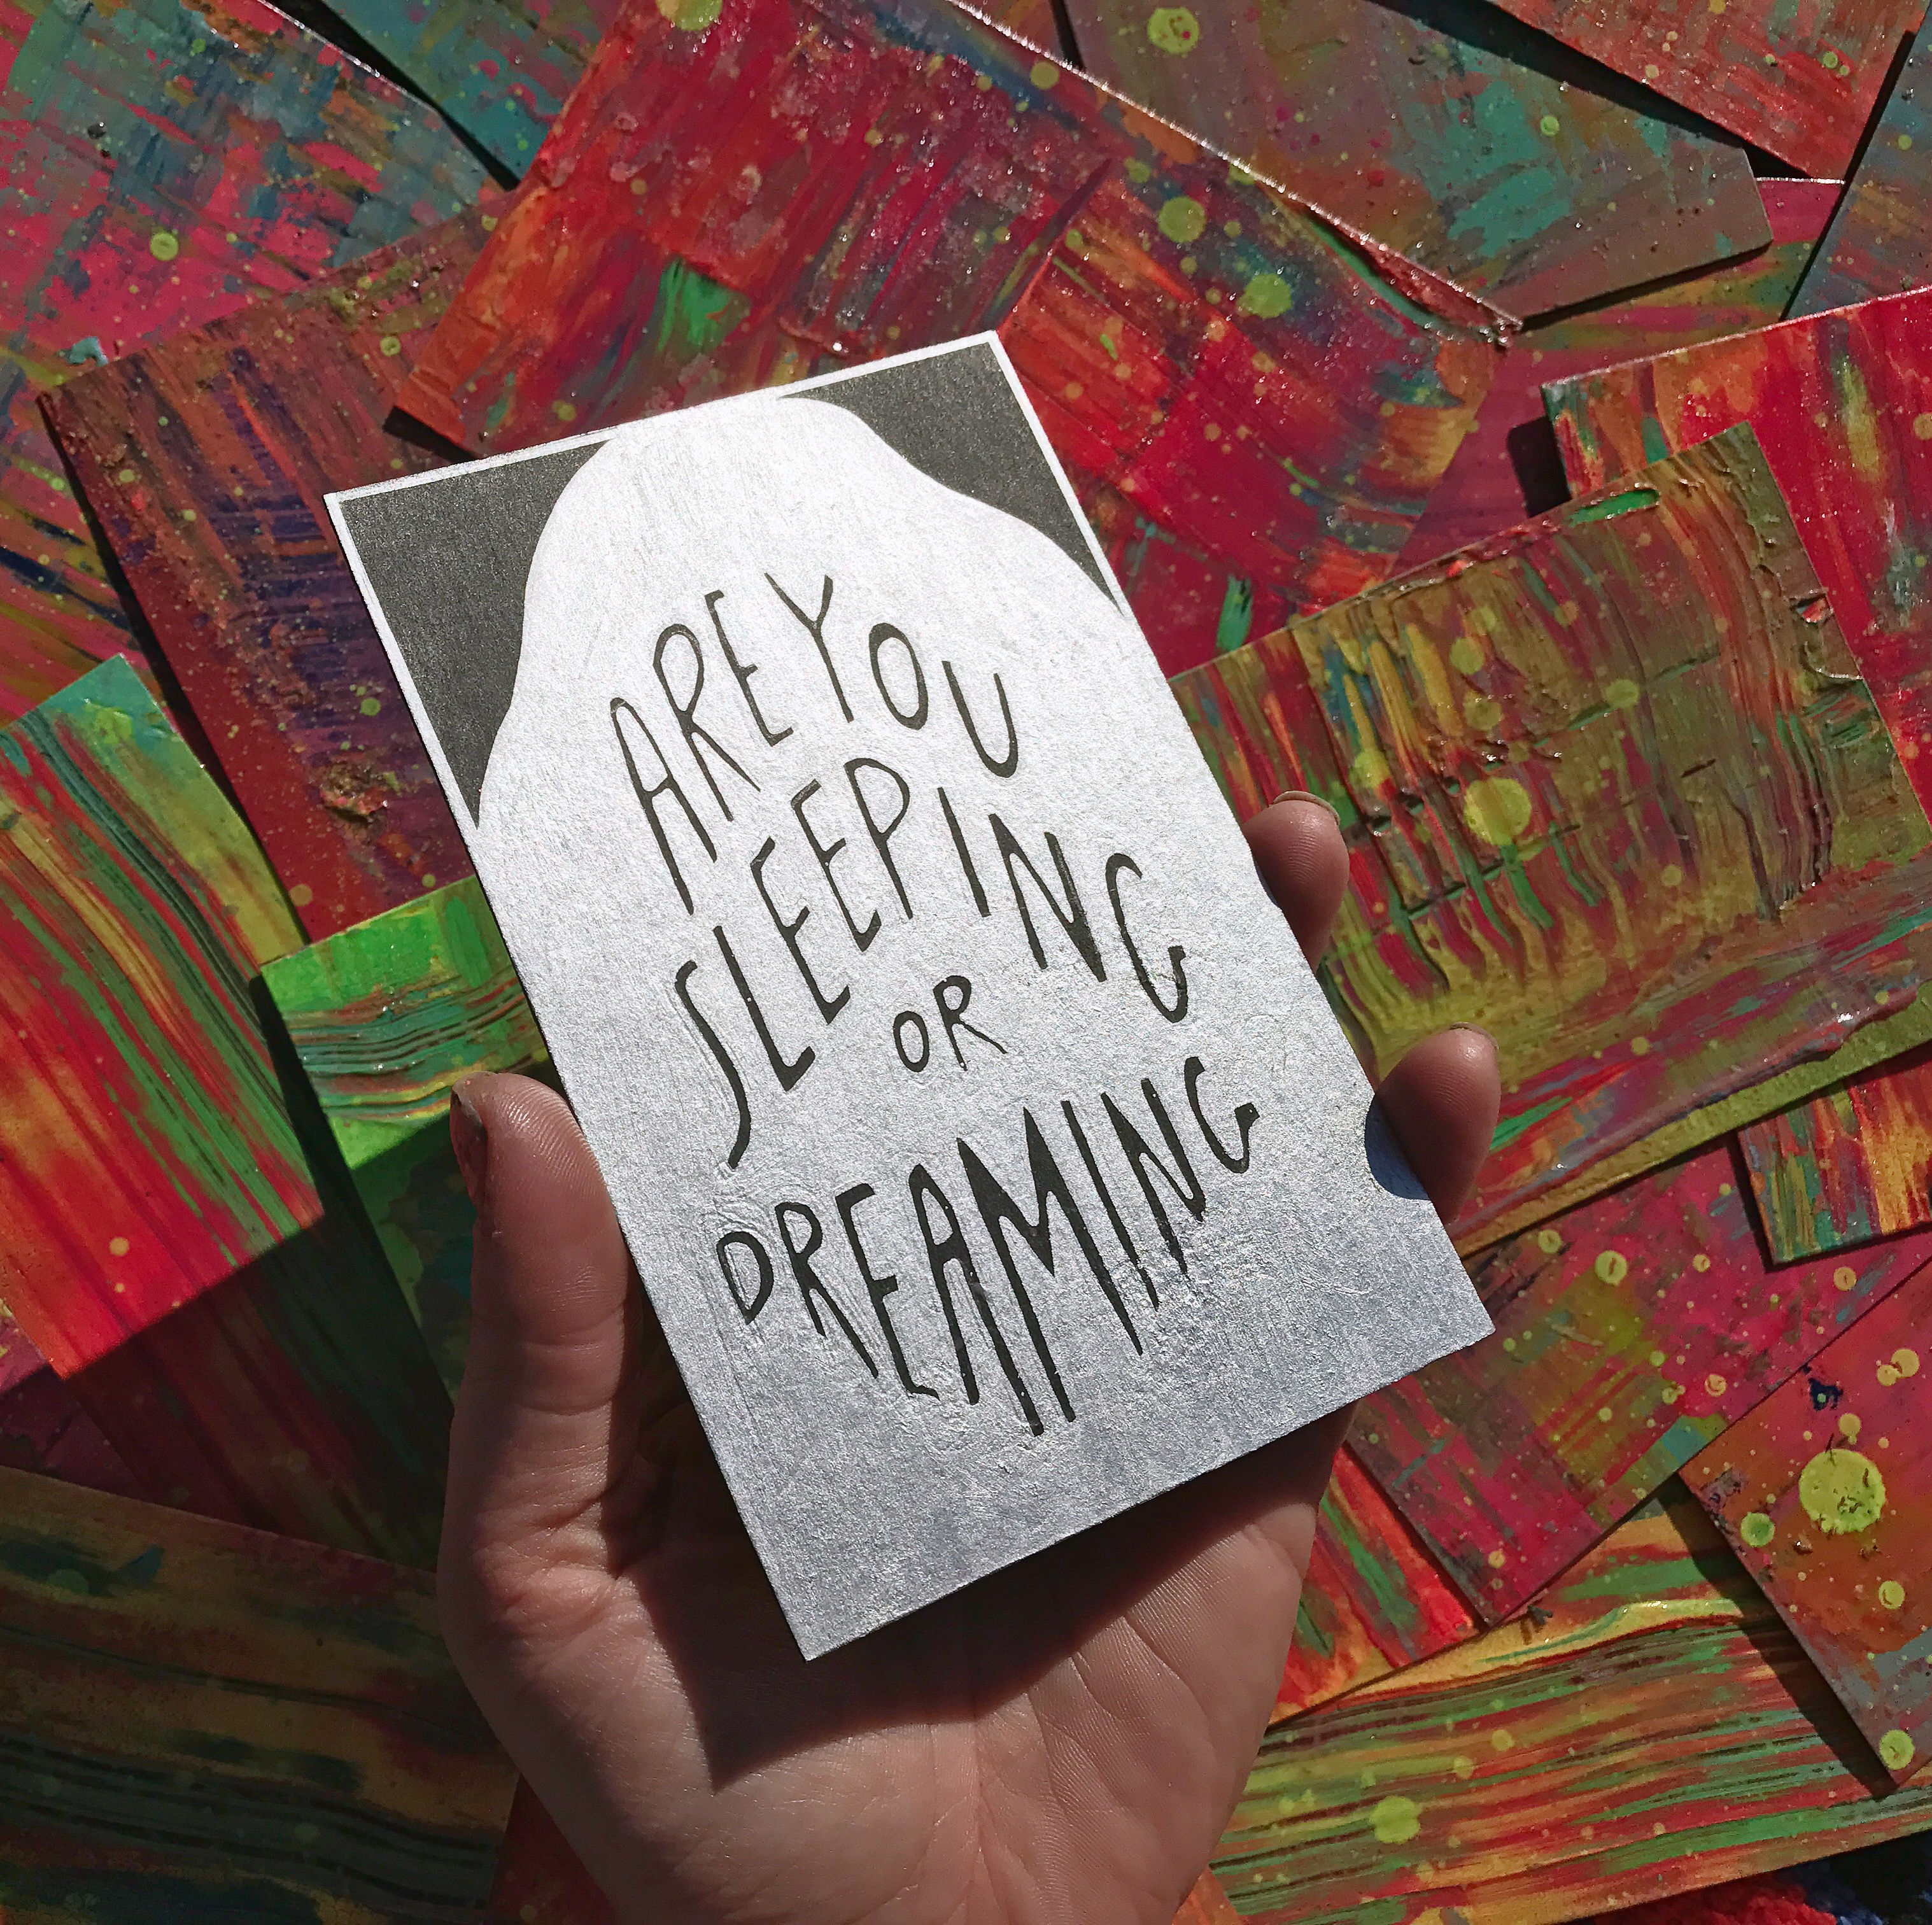 ARE YOU
SLEEPING
OR
DREAMING